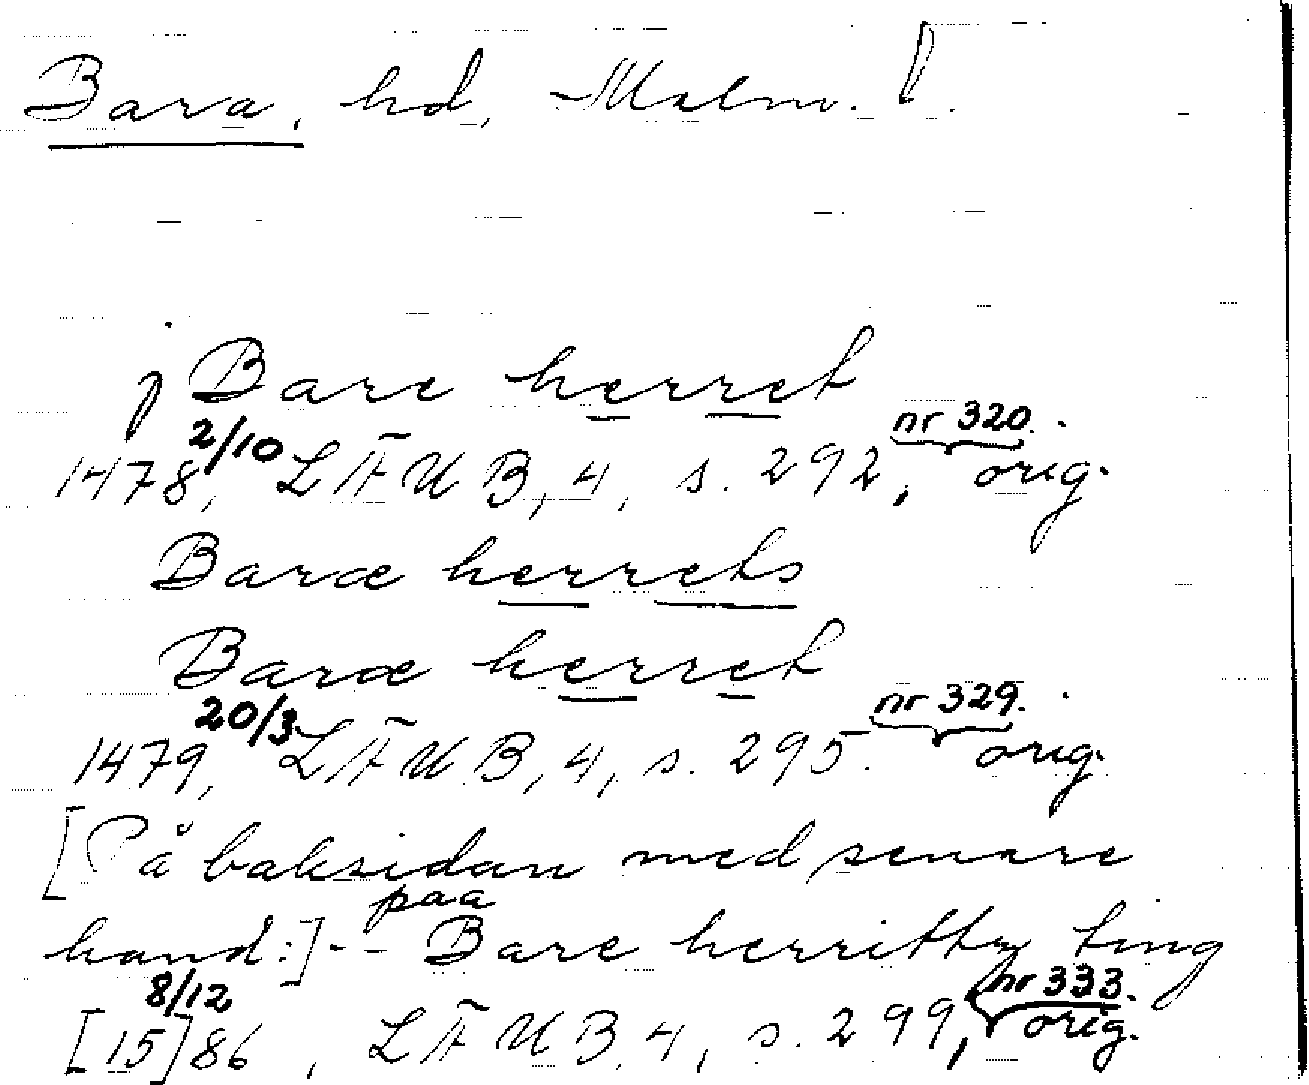 Bara, hd, Malm. l.
j Bare herret
1478 2/10, LÄUB, 4, s. 292, nr 320. orig.
Baræ herrets
Baræ herret
1479, 20/3 LÄUB, 4, s. 295. nr 329. orig.
[På baksidan med senare
hand:] - - paa Bare herritz ting
[15]86 8/12, LÄUB 4, s. 299, nr 333. orig.